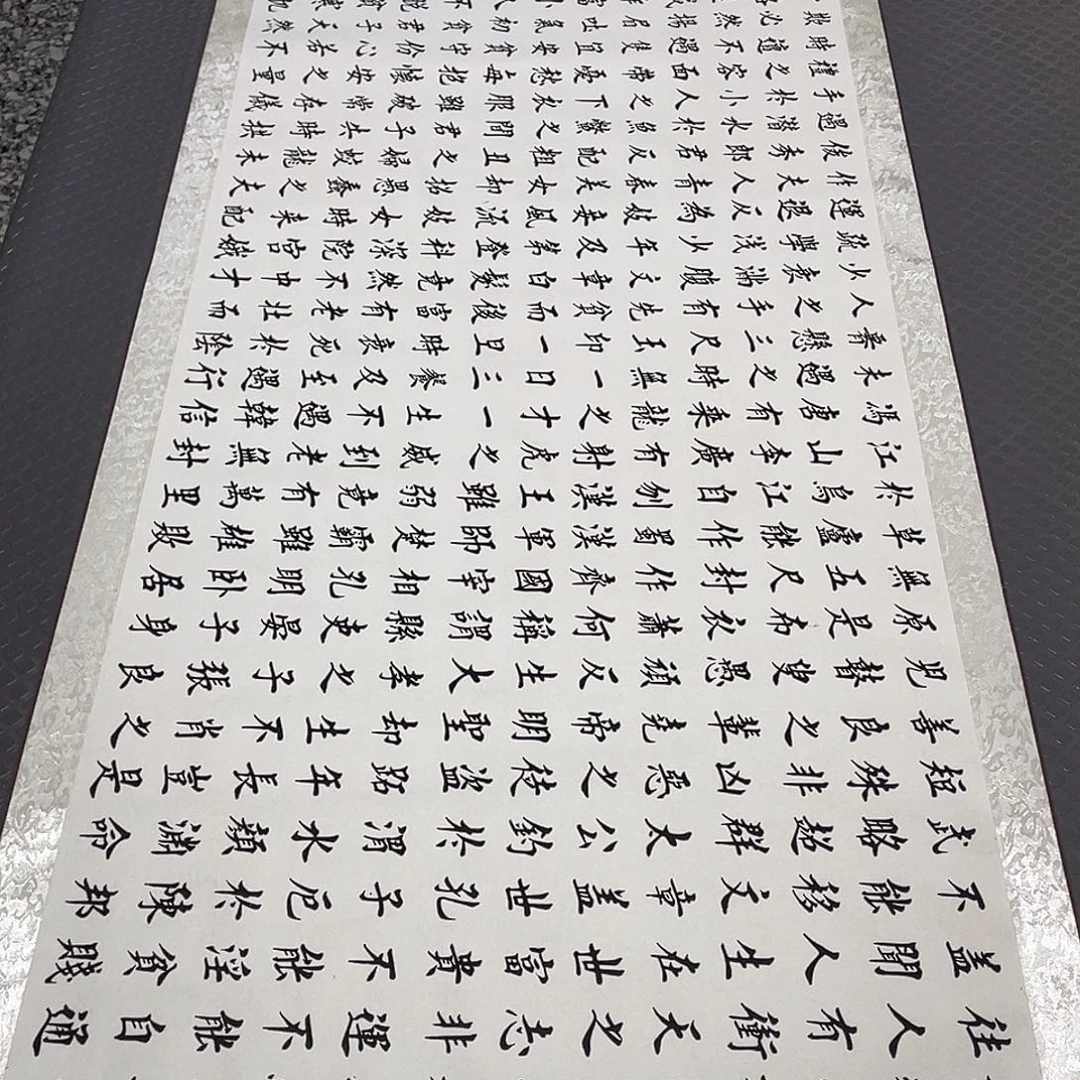 往人有衝天之志非運不能自通
蓋聞人生在世富貴不能淫貧賤
不能移文章蓋世孔子厄於陳邦
武略超群太公釣於渭水顏淵命
短殊非凶惡之徒盜跖年長豈是
善良之輩堯帝明聖却生不肖之
兒瞽叟愚頑反生大孝之子張良
原是布衣蕭何稱謂縣吏晏子身
無五尺封作齊國宰相孔明卧居
草廬能作蜀漢軍師楚霸雖雄敗
於烏江自刎漢王雖弱竟有萬里
江山李廣有射虎之威到老無封
馮唐有乘龍之才一生不遇韓信
未遇之時無一日三餐及至遇行
壽懸三尺玉印一旦時衰死於陰
人之手有先貧而後富有老壯而
少衰滿腹文章白髮竟然不中才
疏學淺少年及第登科深院宮娥
運退反為妓妾風流妓女時來配
作夫人青春美女却招愚蠢之夫
俊秀郎君反配粗丑之婦蛟龍未
遇潛水於魚鱉之間君子失時拱
手於小人之下衣服雖破常存儀
禮之容面帶憂愁每抱懷安之量